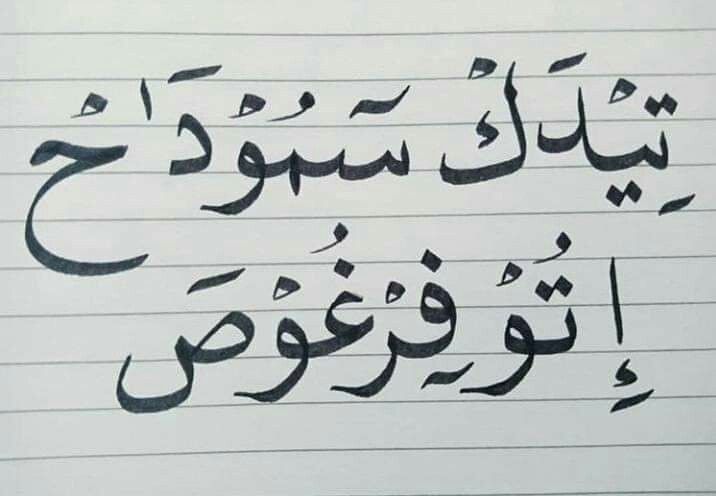 تِيْدَكْ سۤمُوْدَٰحْ
إِتُوْ فِرْغُوْصَ